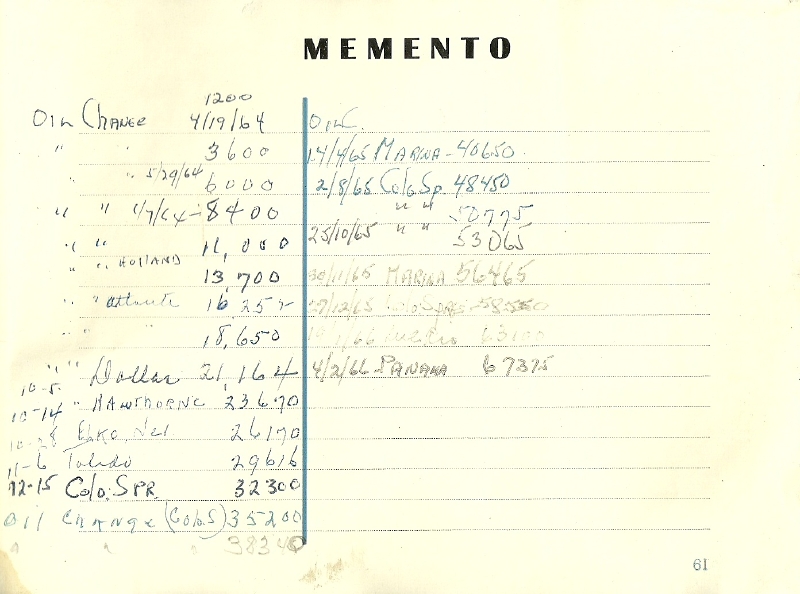 MEMENTO
1200
OIL CHANGE 4/19/64
" " 3600
" 5/29/64 6000
" " 8400
" " 11,000
" " HOLLAND 13,700
" " Atlante 16,252
" " 18,650
10-5 " " Dollar 21,164
10-14 " HAWTHORNE 23670
10-28 ELKO, Nev 26170
11-6 Toledo 29616
12-15 Colo. SPR. 32300
Oil CHANGE (Colo S) 35200
" " " 38340
OIL
14/4/65 MARINA - 40650
2/8/65 Colo Sp 48450
" " 50775
25/10/65 " " 53065
30/11/65 MARINA 56465
27/12/65 Colo Spgs - 58550
/66 63100
4/2/66 PANAMA 67375
61